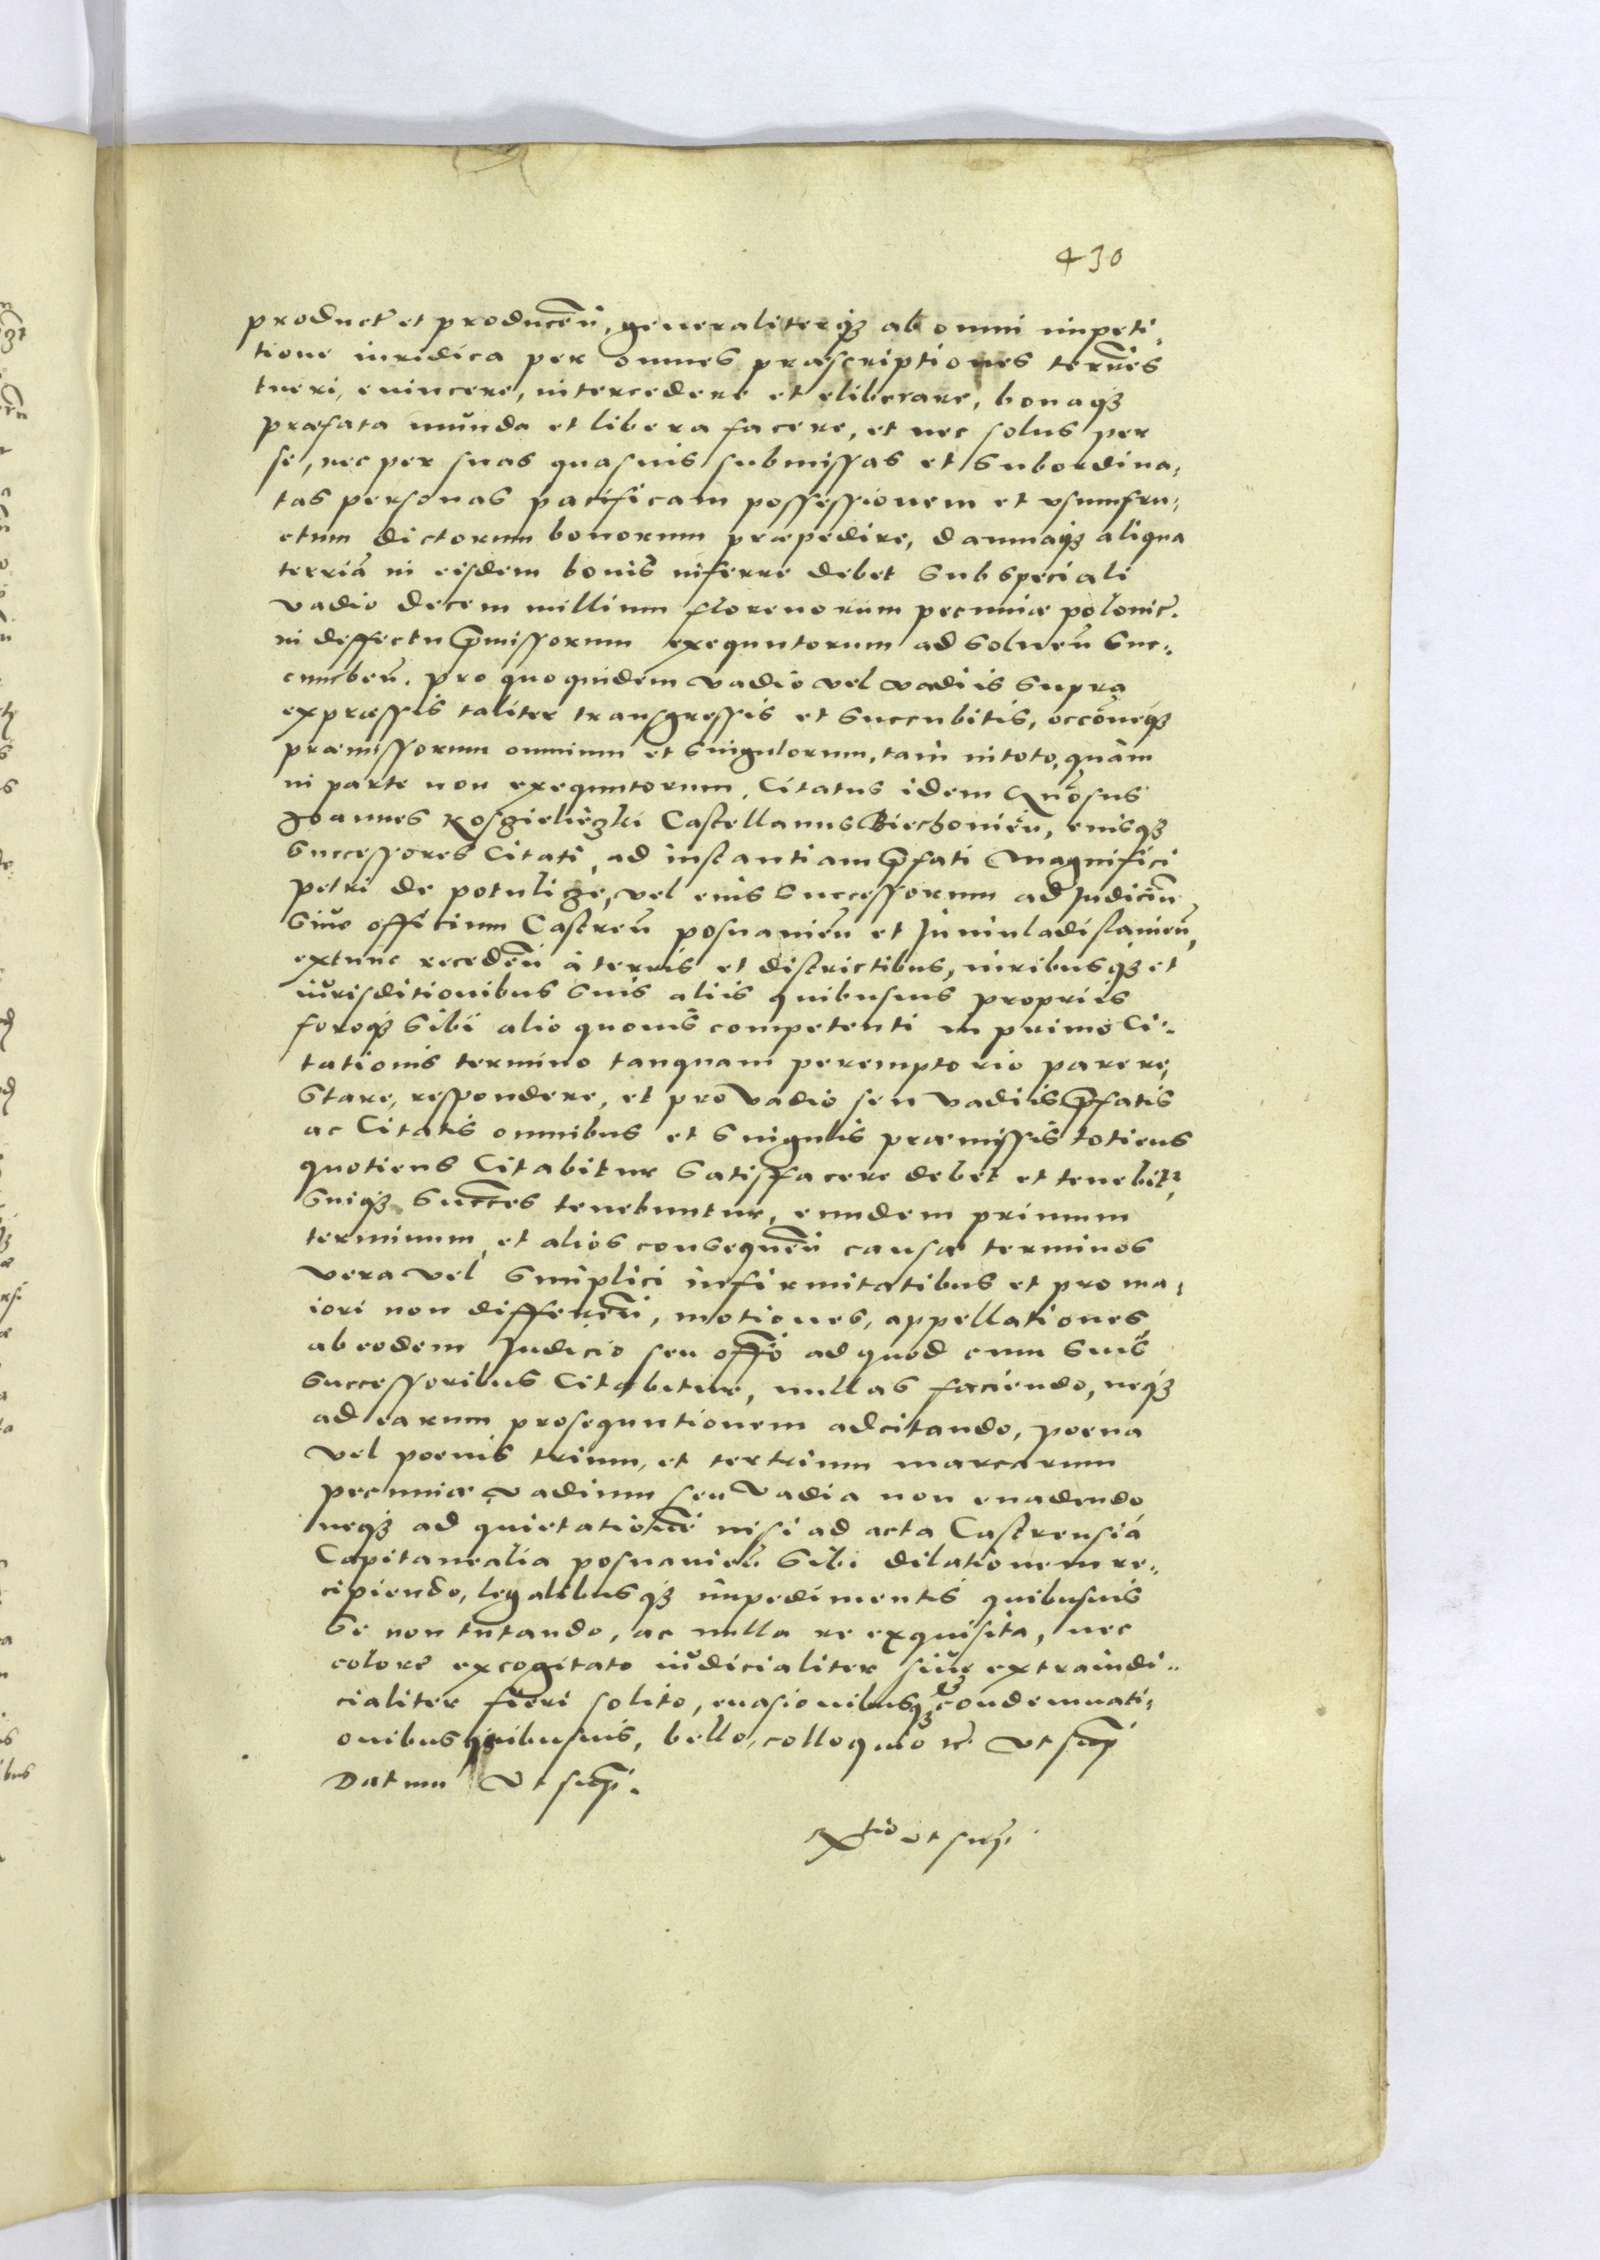 430
product et producen, generaliterq3 ab omni impeti,
tione iuridica per omnes præscriptiones terrnes
tueri, euincere, intercedere et eliberare, bonaq3
præfata munda et libera facere, et nec solus per
se, nec per suas quasuis submissas et subordina,
tas personas pacificam possessionem et vsumfru,
ctum dictorum bonorum præpedire, damnaq3 aliqua
terria in eisdem bonis inferre debet sub speciali
vadio decem millium florenorum pecuniæ polonic.
in deffectu pmissorum exequutorum ad soluen suc,
cumben. pro quo quidem vadio vel vadiis supra
expressis taliter transgressis et succubitis, occōneq3
præmissorum omnium et singulorum, tam in toto, quàm
in parte non exequutorum, Citatus idem Gnosus
Joannes Kosczielieczki Castellanus Biechouien, eiusq3
successores Citati, ad instantiam pfati Magnifici
Petri de Potulicze, vel eius successorum ad Judicium
siue officium Castren posnanien et Juniuladislauien,
extunc receden à terris et districtibus, iuribusq3 et
iurisditionibus suis aliis quibusuis propriis
foroq3 sibi alio quouis competenti in primo Ci,
tationis termino tanquam peremptorio parere,
stare, respondere, et pro vadio seu vadiis pfatis
ac Citatis omnibus et singulis præmissis totiens
quotiens Citabitur satisfacere debet et tenebitr,
suiq3 succes tenebuntur, eundem primum
terminum, et alios consequen causæ terminos
vera vel simplici infirmitatibus et pro ma,
iori non differen, motiones, appellationes
ab eodem Judicio seu offo ad quod cum suis
successoribus Citabitur, nullas faciendo, neq3
ad earum prosequutionem adcitando, poena
vel poenis trium, et tertrium marcarum
pecuniæ vadium seu vadia non euadendo
neq3 ad quietatione nisi ad acta Castrensia
Capitanealia posnanien sibi dilationem re,
cipiendo, legalibusq3 impedimentis quibusuis
se non tutando, ac nulla re exquisita, nec
colore excogitato iudicialiter siue extraiudi,
cialiter fieri solito, euasionibusq3 condemnati,
onibus quibusuis, bello, colloquio et ut sup
Datum Vt sup.
Rtio ut sup.